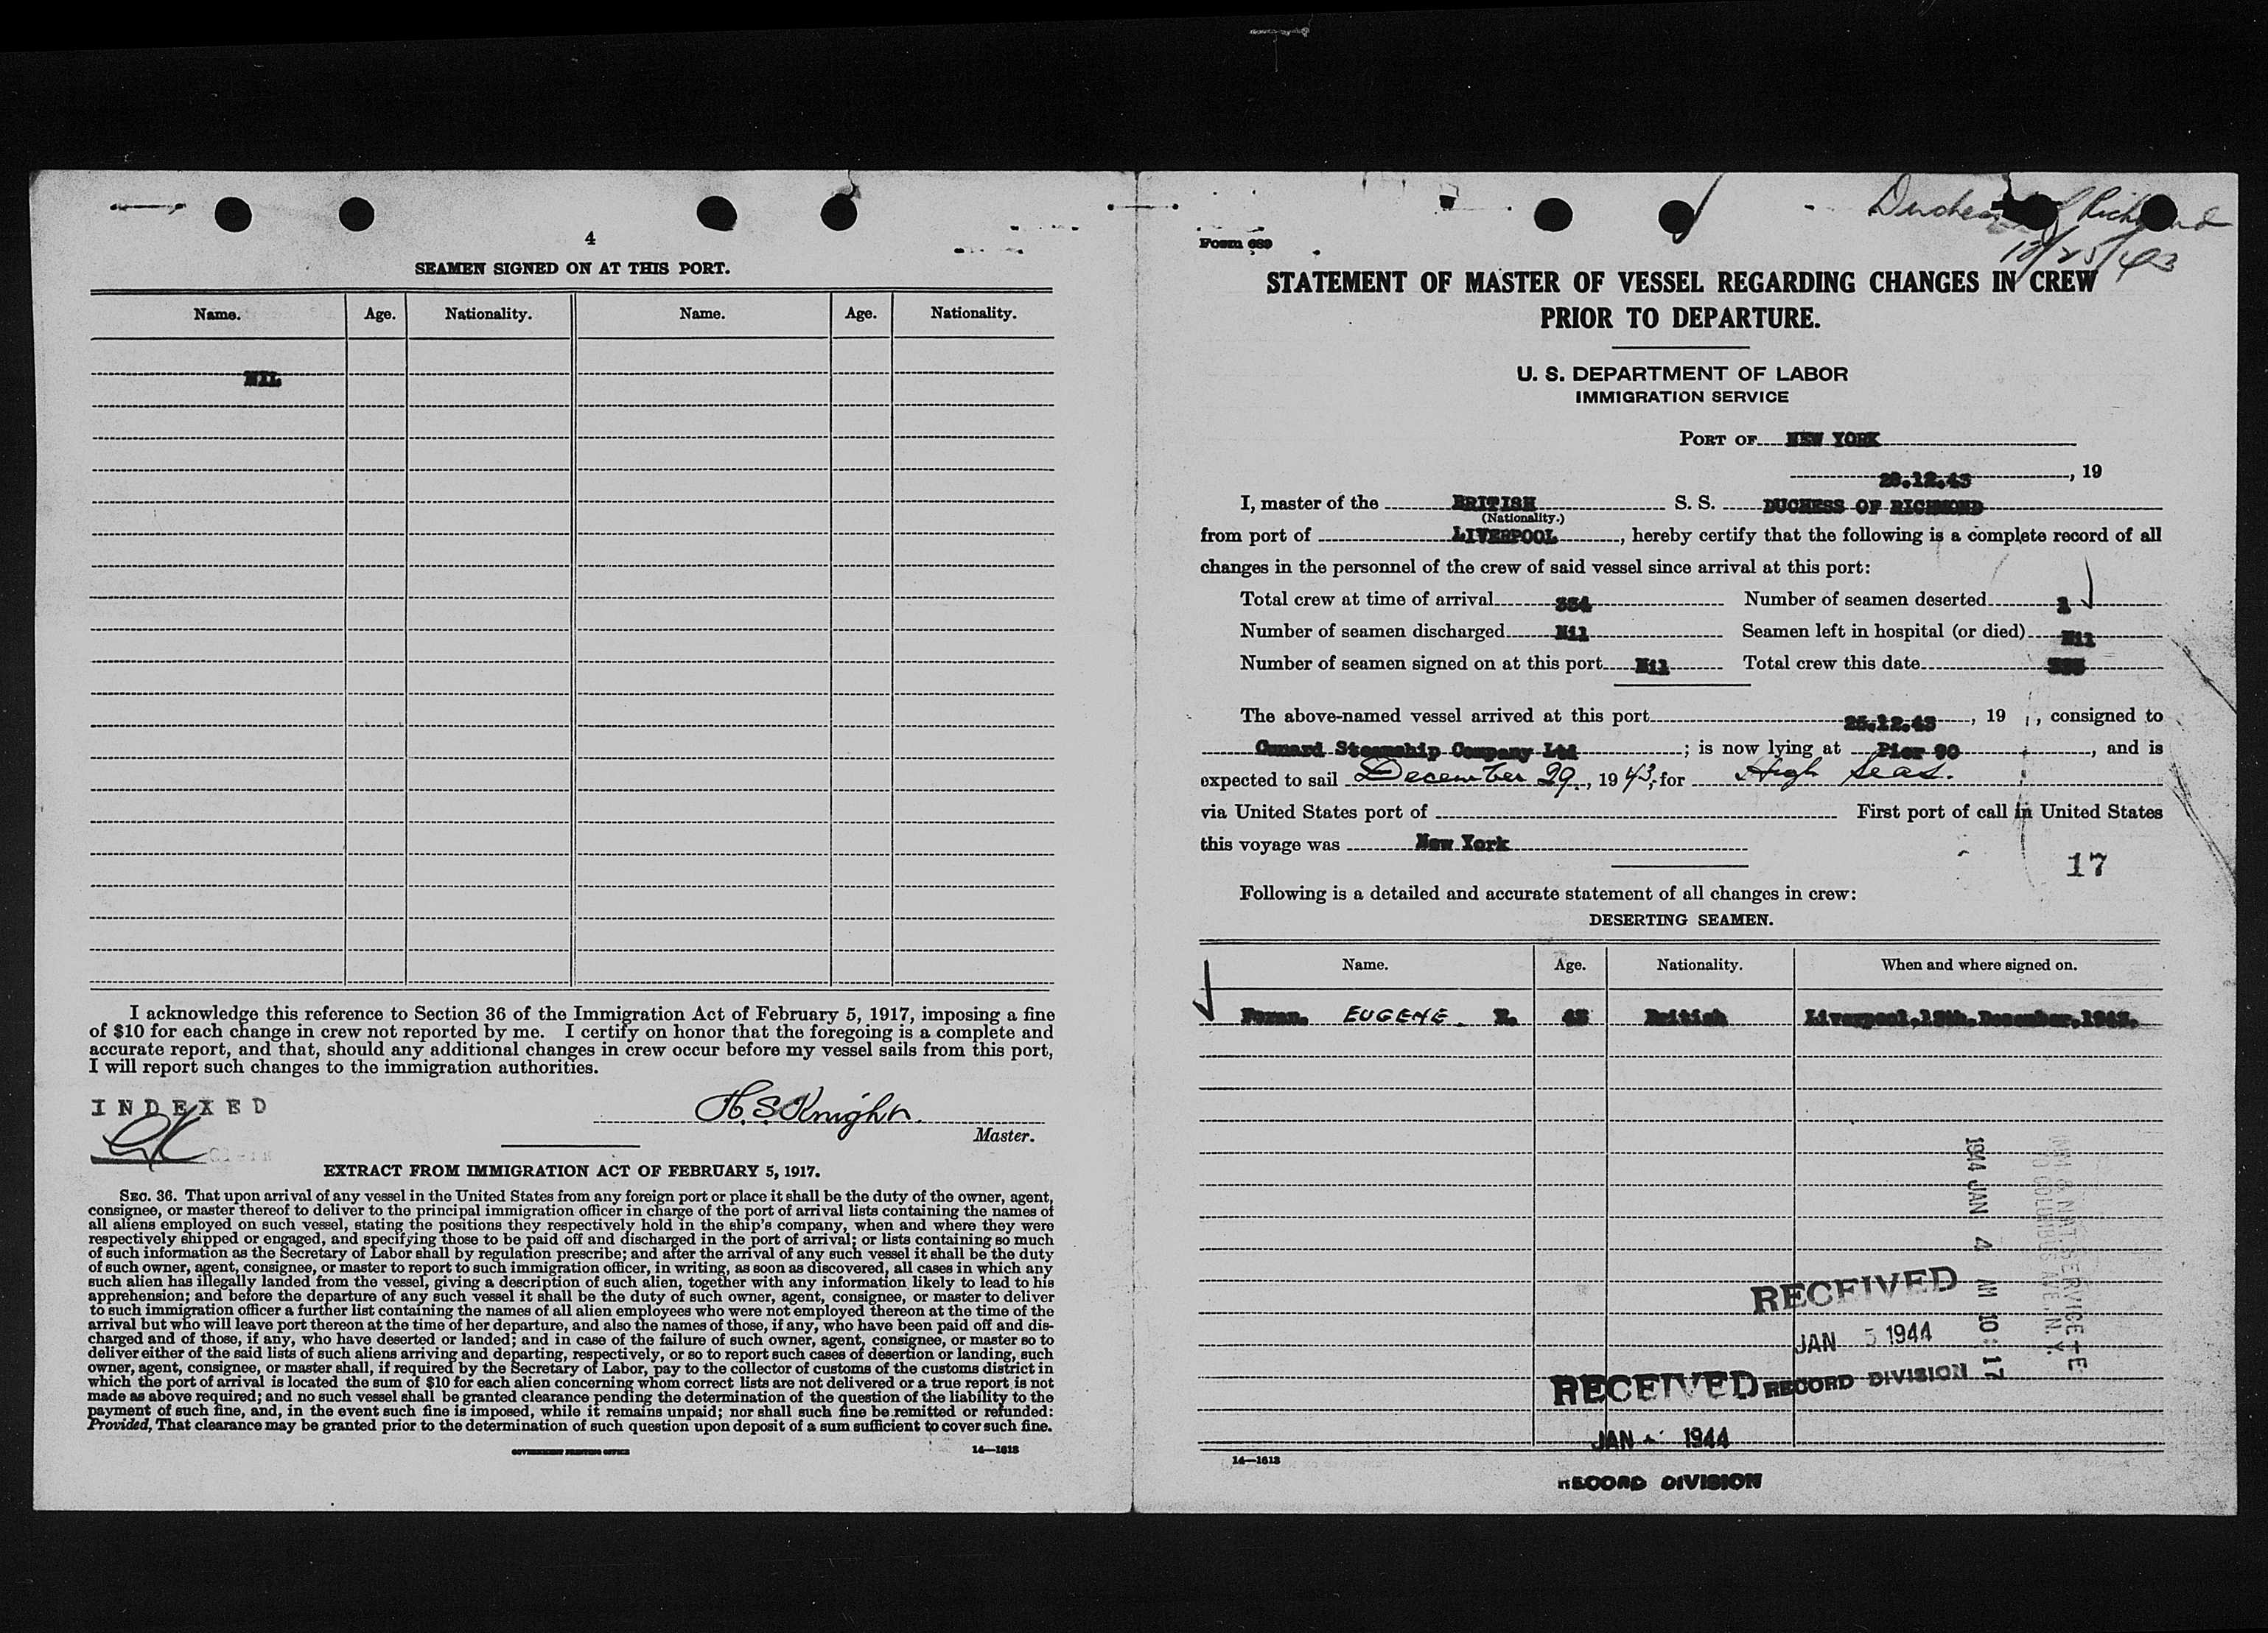 4
SEAMEN SIGNED ON AT THIS PORT.
Name. Age. Nationality. Name. Age. Nationality.
NIL
I acknowledge this reference to Section 36 of the Immigration Act of February 5, 1917, imposing a fine
of $10 for each change in crew not reported by me. I certify on honor that the foregoing is a complete and
accurate report, and that, should any additional changes in crew occur before my vessel sails from this port,
I will report such changes to the immigration authorities.
INDEXED
H. S. Knight
Master.
EXTRACT FROM IMMIGRATION ACT OF FEBRUARY 5, 1917.
SEC. 36. That upon arrival of any vessel in the United States from any foreign port or place it shall be the duty of the owner, agent,
consignee, or master thereof to deliver to the principal immigration officer in charge of the port of arrival lists containing the names of
all aliens employed on such vessel, stating the positions they respectively hold in the ship's company, when and where they were
respectively shipped or engaged, and specifying those to be paid off and discharged in the port of arrival; or lists containing so much
of such information as the Secretary of Labor shall by regulation prescribe; and after the arrival of any such vessel it shall be the duty
of such owner, agent, consignee, or master to report to such immigration officer, in writing, as soon as discovered, all cases in which any
such alien has illegally landed from the vessel, giving a description of such alien, together with any information likely to lead to his
apprehension; and before the departure of any such vessel it shall be the duty of such owner, agent, consignee, or master to deliver
to such immigration officer a further list containing the names of all alien employees who were not employed thereon at the time of the
arrival but who will leave port thereon at the time of her departure, and also the names of those, if any, who have been paid off and dis-
charged and of those, if any, who have deserted or landed; and in case of the failure of such owner, agent, consignee, or master so to
deliver either of the said lists of such aliens arriving and departing, respectively, or so to report such cases of desertion or landing, such
owner, agent, consignee, or master shall, if required by the Secretary of Labor, pay to the collector of customs of the customs district in
which the port of arrival is located the sum of $10 for each alien concerning whom correct lists are not delivered or a true report is not
made as above required; and no such vessel shall be granted clearance pending the determination of the question of the liability to the
payment of such fine, and, in the event such fine is imposed, while it remains unpaid; nor shall such fine be remitted or refunded:
Provided, That clearance may be granted prior to the determination of such question upon deposit of a sum sufficient to cover such fine.
GOVERNMENT PRINTING OFFICE 14—1613
Duchess of Richmond
12/25/43
Form 689
STATEMENT OF MASTER OF VESSEL REGARDING CHANGES IN CREW
PRIOR TO DEPARTURE.
U. S. DEPARTMENT OF LABOR
IMMIGRATION SERVICE
PORT OF NEW YORK
.12.43, 19
I, master of the BRITISH S. S. DUCHESS OF RICHMOND
(Nationality.)
from port of LIVERPOOL, hereby certify that the following is a complete record of all
changes in the personnel of the crew of said vessel since arrival at this port:
Total crew at time of arrival 334 Number of seamen deserted 1
Number of seamen discharged Nil Seamen left in hospital (or died) Nil
Number of seamen signed on at this port Nil Total crew this date
The above-named vessel arrived at this port 25.12.43, 19 , consigned to
Cunard Steamship Company Ltd; is now lying at Pier 90, and is
expected to sail December 29, 1943, for High Seas.
via United States port of First port of call in United States
this voyage was New York
17
Following is a detailed and accurate statement of all changes in crew:
DESERTING SEAMEN.
Name. Age. Nationality. When and where signed on.
Foran. EUGENE. British Liverpool. December, 1943.
1944 JAN 4 AM 10:17
RECEIVED
JAN 5 1944
RECORD DIVISION
RECEIVED
JAN 1944
RECORD DIVISION
14—1613